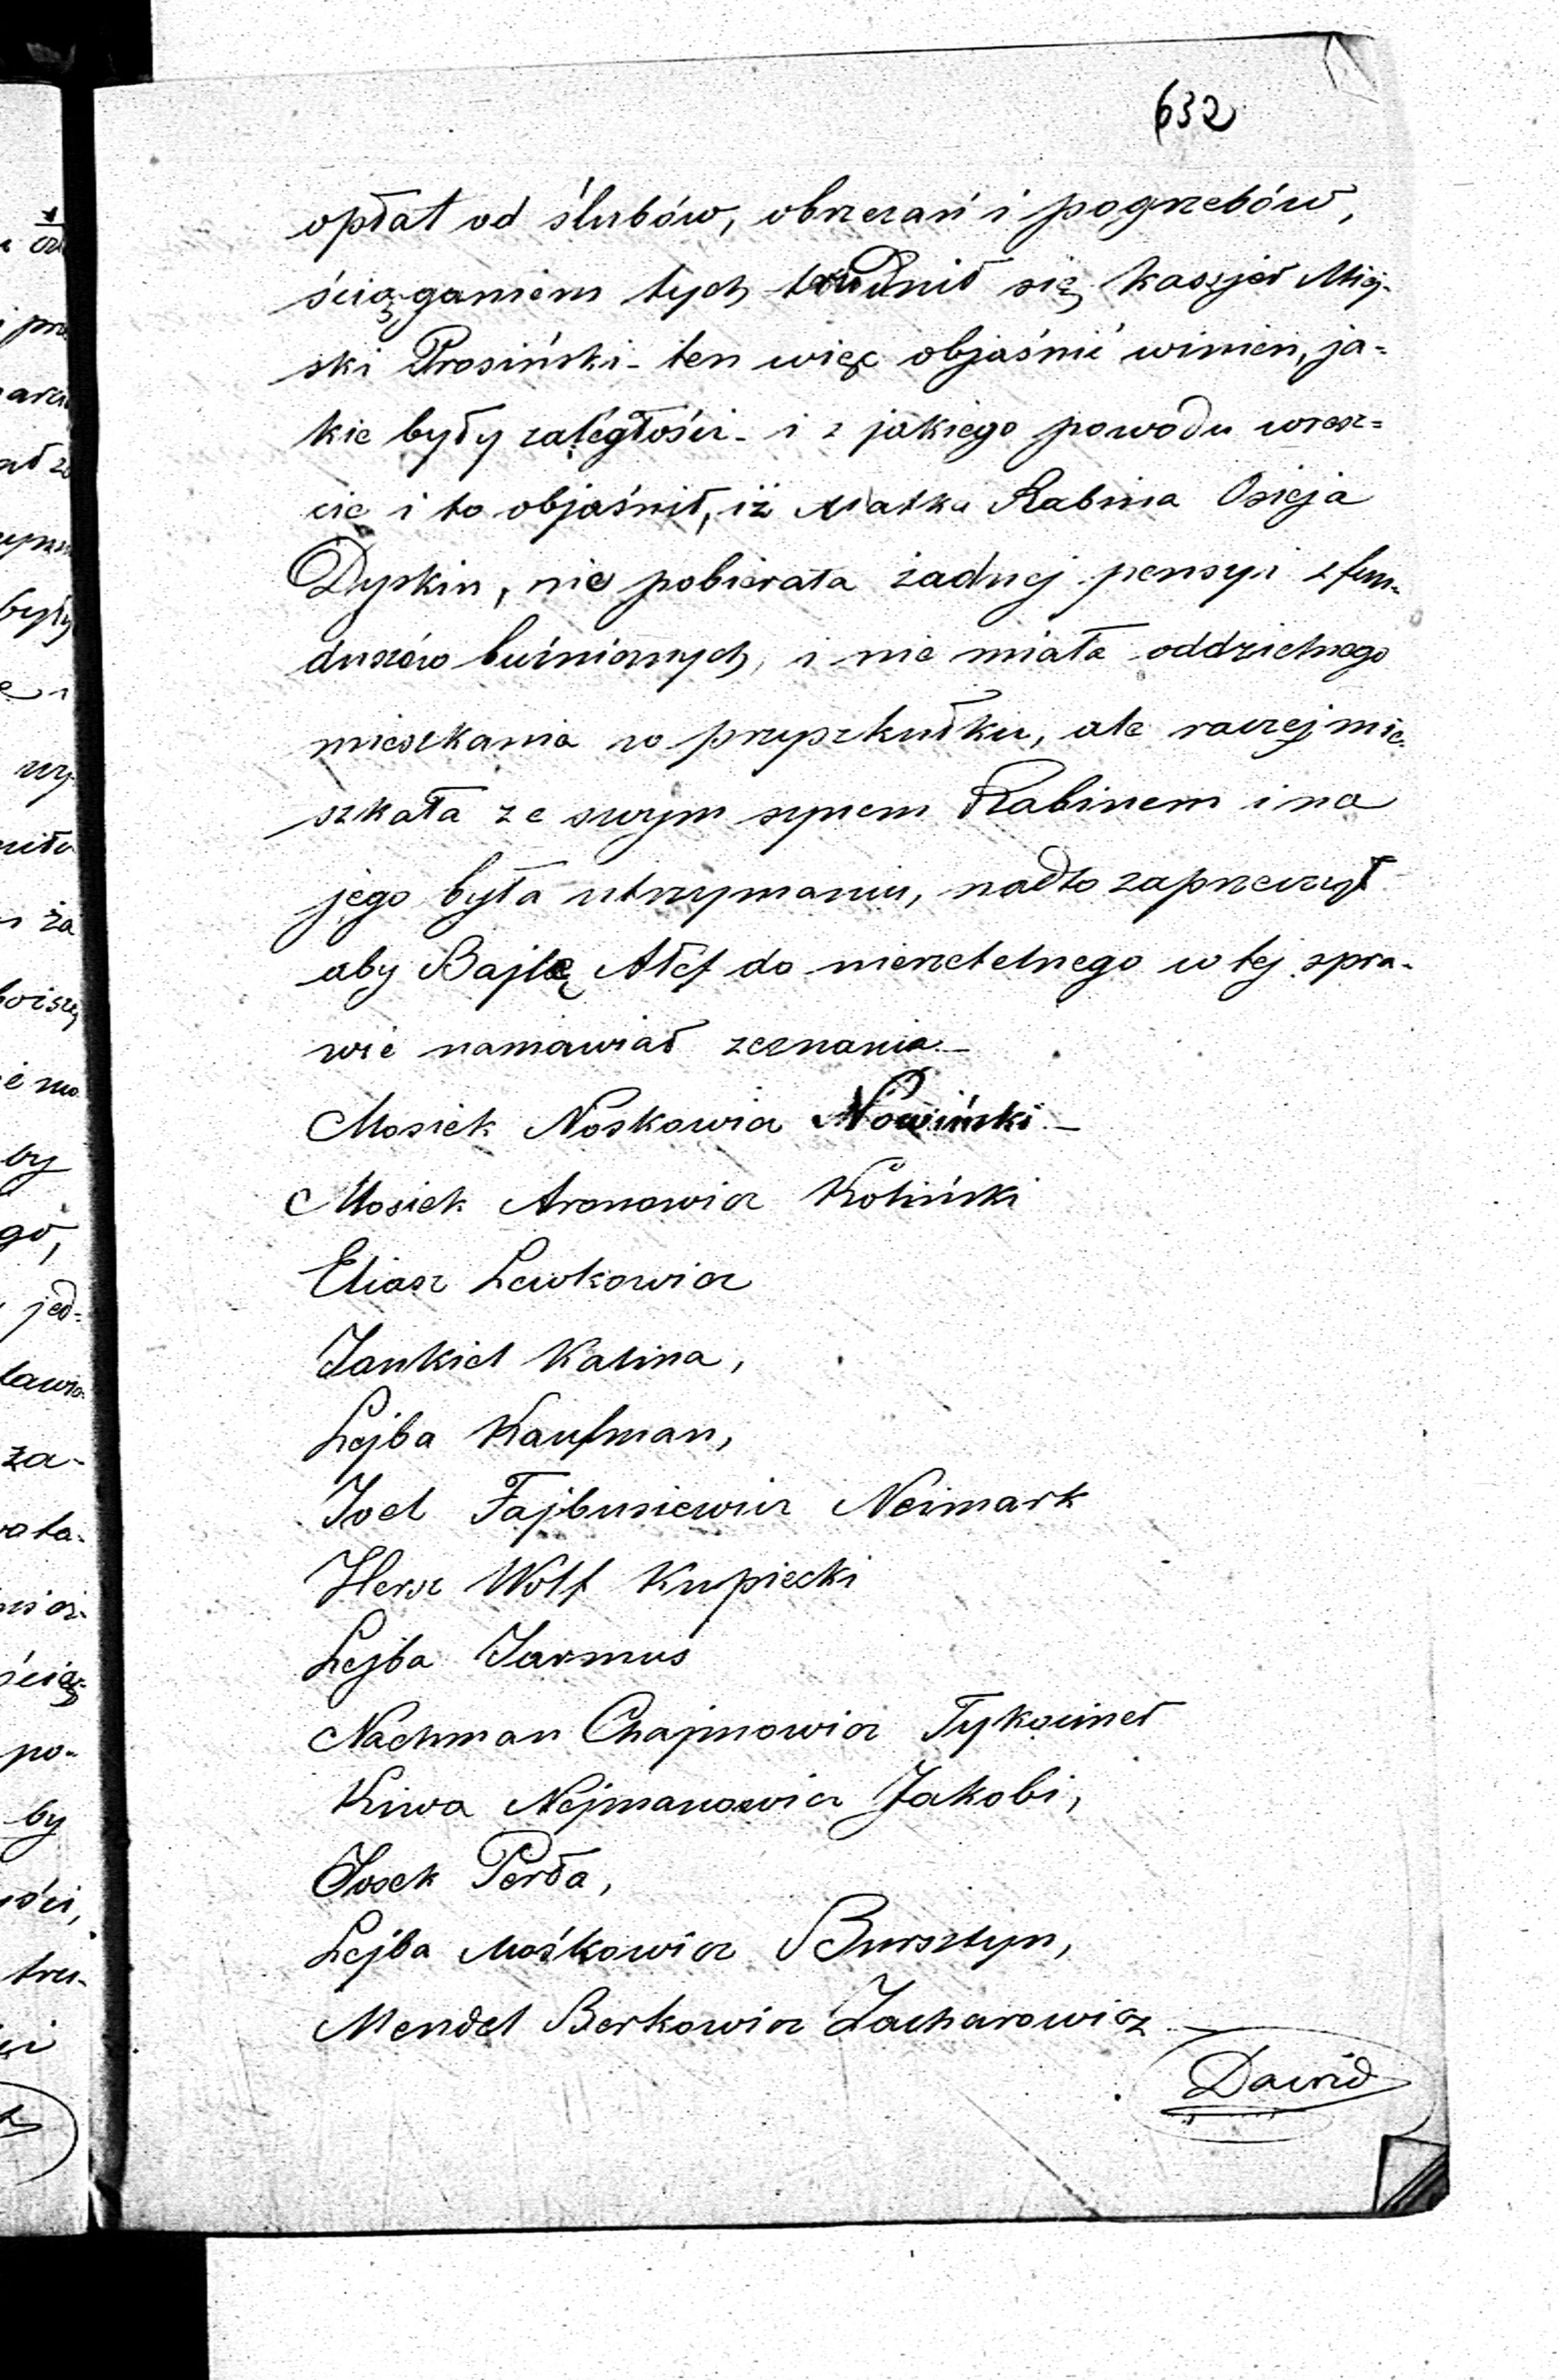 632
opłat od ślubów, obrzezań i pogrzebów,
ściąganiem tych trudnił się kassjer Miej-
ski Prosiński - ten więc objaśnić winien, ja=
kie były zaległości - i z jakiego powodu wresz=
cie i to objaśnił, iż Matka Rabina Osieja
Dyskin, nie pobierała żadnej pensyi z fun-
duszów buźnicznych, i nie miała oddzielnego
mieszkania w przyszkułku, ale raczej mie-
szkała ze swym synem Rabinem i na
jego była utrzymaniu, nadto zaprzeczył
aby Bajlę Ałef do nierzetelnego w tej spra-
wie namawiał zeznania. -
Mosiek Noskowicz Nowiński -
Mosiek Aronowicz Koliński
Eliasz Lewkowicz
Jankiel Kalina,
Lejba Kaufman,
Joel Fajbusiewicz Neimark
Hersz Wolf Kupiecki
Lejba Jarmus
Nachman Chajmowicz Tykociner
Kiwa Nejmanowicz Jakobi,
Josek Perła,
Lejba Mośkowicz Bursztyn,
Mendel Berkowicz Zacharowicz
Dawid